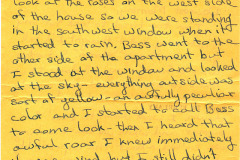 look at the roses on the west side
of the house so we were standing
in the southwest window when it
started to rain. Bess went to the
other side of the apartment but
I stood at the window and looked
at the sky - everything outside was
sort of yellow - an awfully peculiar
color and I started to call Bess
to come look - then I heard that
awful roar I knew immediately
wind but I still didn't